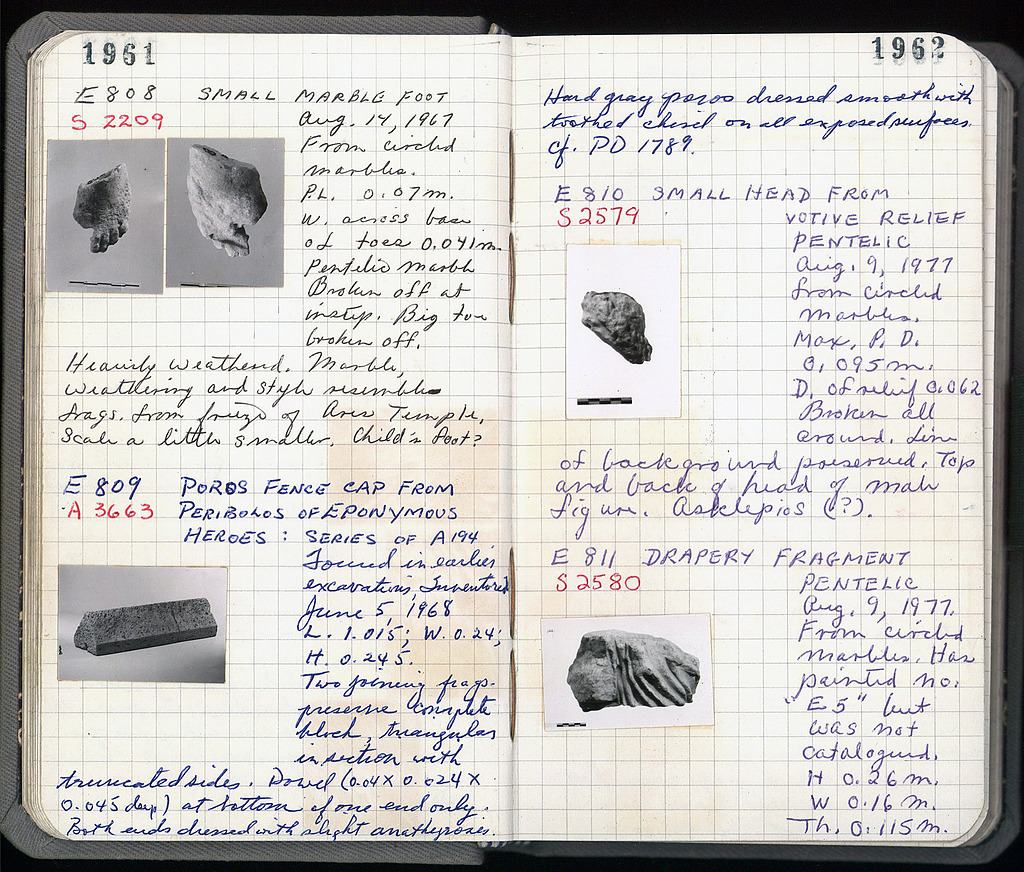 1961
E 808 SMALL MARBLE FOOT
S 2209 Aug. 14, 1967
From circled
marbles.
P.L. 0.07m.
W. across base
of toes 0.041m.
Pentelic marble
Broken off at
instep. Big toe
broken off.
Heavily weathered. Marble,
weathering and style resemble
frags. from frieze of Ares Temple,
Scale a little smaller. Child's foot?
E 809 POROS FENCE CAP FROM
A 3663 PERIBOLOS OF EPONYMOUS
HEROES: SERIES OF A194
Found in earlier
excavations, Inventoried
June 5, 1968
L. 1.015; W. 0.24;
H. 0.245.
Two joining frags.
preserve complete
block, triangular
in section with
truncated sides. Dowel (0.04 X 0.024 X
0.045 deep) at bottom of one end only.
Both ends dressed with slight anathyrosis.
1962
Hard gray poros dressed smooth with
toothed chisel on all exposed surfaces.
cf. PD 1789.
E 810 SMALL HEAD FROM
S 2579 VOTIVE RELIEF
PENTELIC
Aug. 9, 1977
From circled
marbles.
Max. P. D.
0.095m.
D. of relief 0.062
Broken all
around. Line
of background preserved. Top
and back of head of male
figure. Asklepios (?).
E 811 DRAPERY FRAGMENT
S 2580 PENTELIC
Aug. 9, 1977.
From circled
marbles. Has
painted no.
"E 5" but
was not
catalogued.
H 0.26 m.
W 0.16 m.
Th. 0.115m.